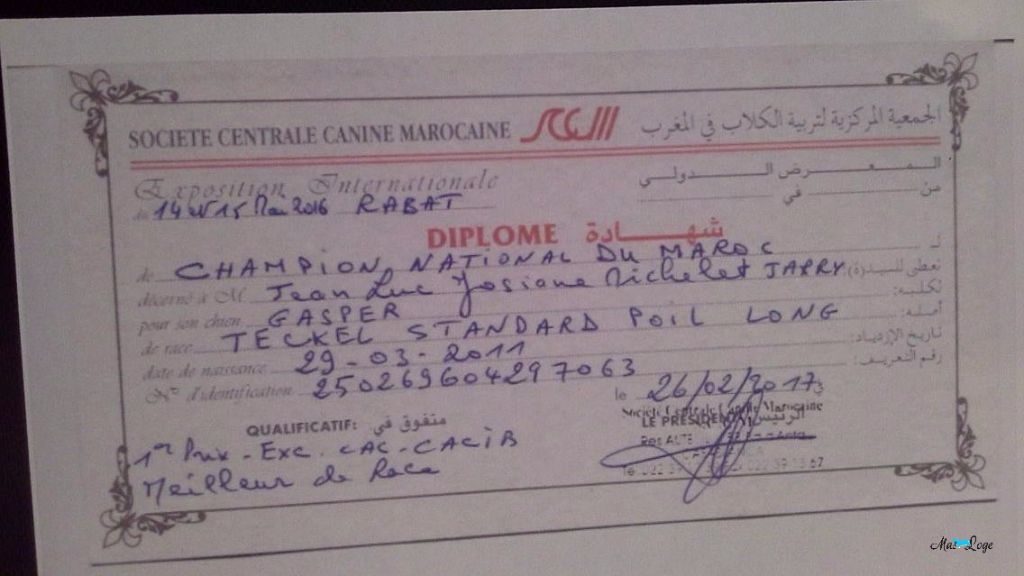 SOCIETE CENTRALE CANINE MAROCAINE الجمعية المركزية لتربية الكلاب في المغرب
Exposition Internationale المعرض الدولي
du 14 et 15 Mai 2016 RABAT من في
DIPLOME شهادة
de CHAMPION NATIONAL DU MAROC لـ
décerné à M Jean Luc Josiane Michelet JARRY تعطى للسيد(ة):
pour son chien GASPER لكلبه:
de race TECKEL STANDARD POIL LONG أصله:
date de naissance 29-03-2011 تاريخ الإزدياد:
N° d'identification 250269604297063 رقم التعريف:
le 26/02/2017
QUALIFICATIF: متفوق في:
Société Centrale Canine Marocaine
LE PRESIDENT الرئيس
1er Prix - Exc. CAC-CACIB
Meilleur de Race
Loge